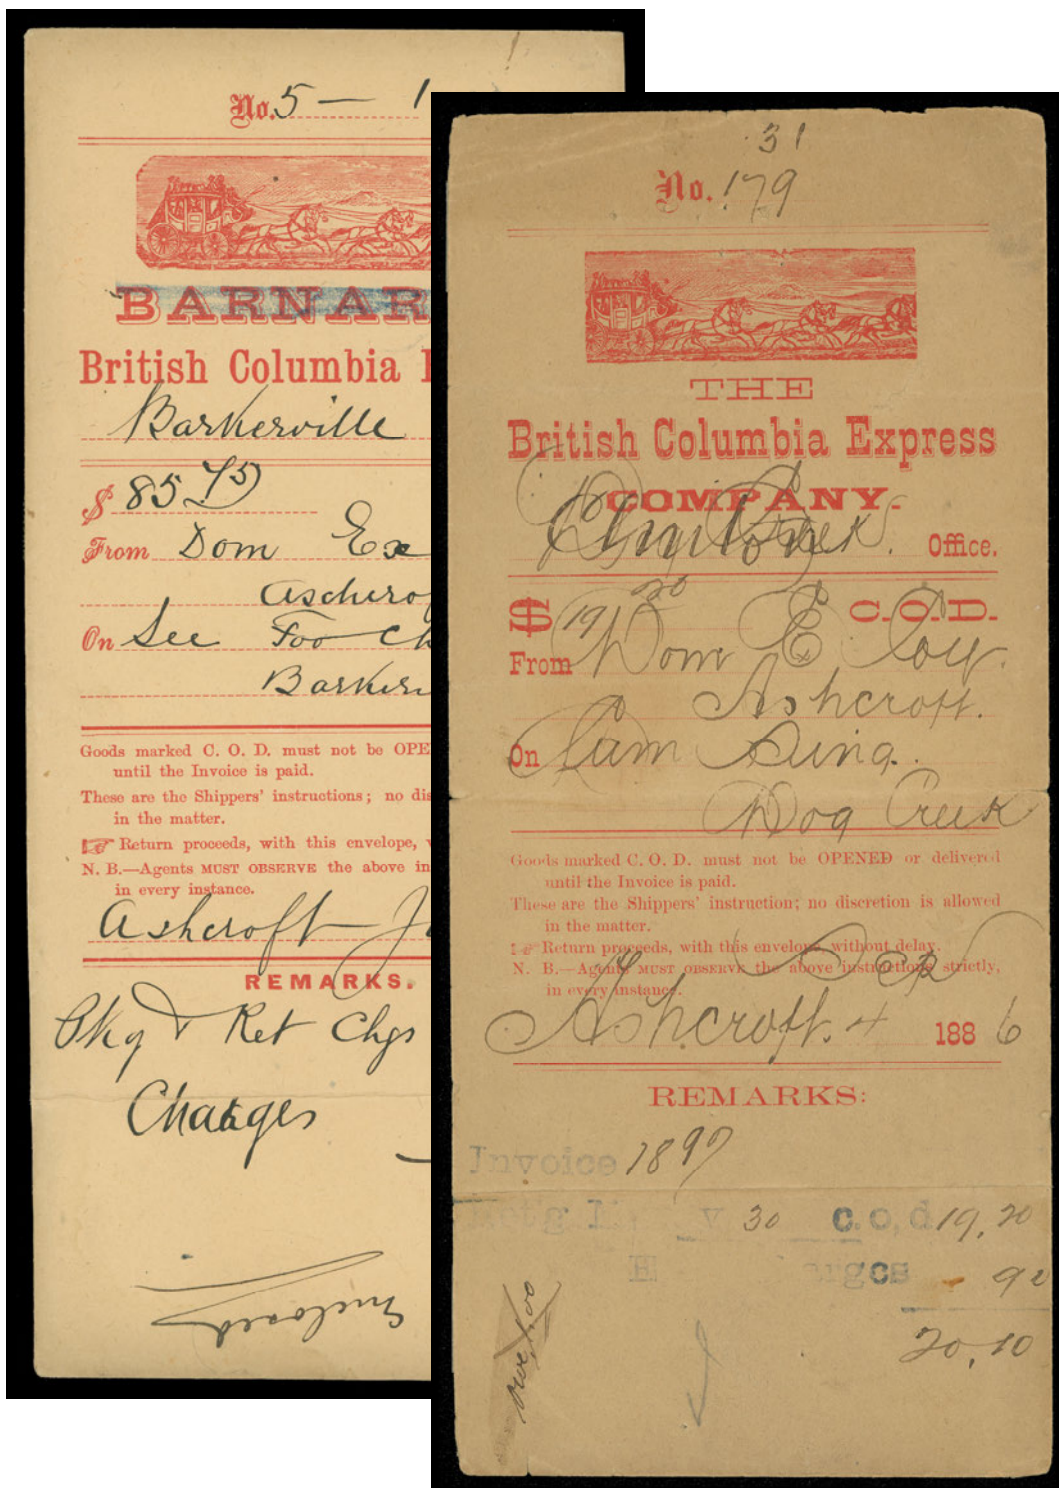 No. 5 — 1
BARNAR
British Columbia
Barkerville
$ 85 75
From Dom Ex
Aschcro
On See Foo Ch
Barker
Goods marked C. O. D. must not be OPE
until the Invoice is paid.
These are the Shippers' instructions; no dis
in the matter.
Return proceeds, with this envelope,
N. B.—Agents MUST OBSERVE the above in
in every instance.
Ashcroft
REMARKS.
Pkg & Ret Chgs
Charges
Enclosed
31
No. 179
THE
British Columbia Express
COMPANY.
Office.
$ 19 20 C.O.D.
From Dom E Coy.
Ashcroft.
On Sam Sing.
Dog Creek
Goods marked C. O. D. must not be OPENED or delivered
until the Invoice is paid.
These are the Shippers' instruction; no discretion is allowed
in the matter.
Return proceeds, with this envelope, without delay.
N. B.—Agents MUST OBSERVE the above instructions strictly,
in every instance.
Sep
Ashcroft. 4 1886
REMARKS:
Invoice 1897
30 c.o.d 19.20
90
20.10